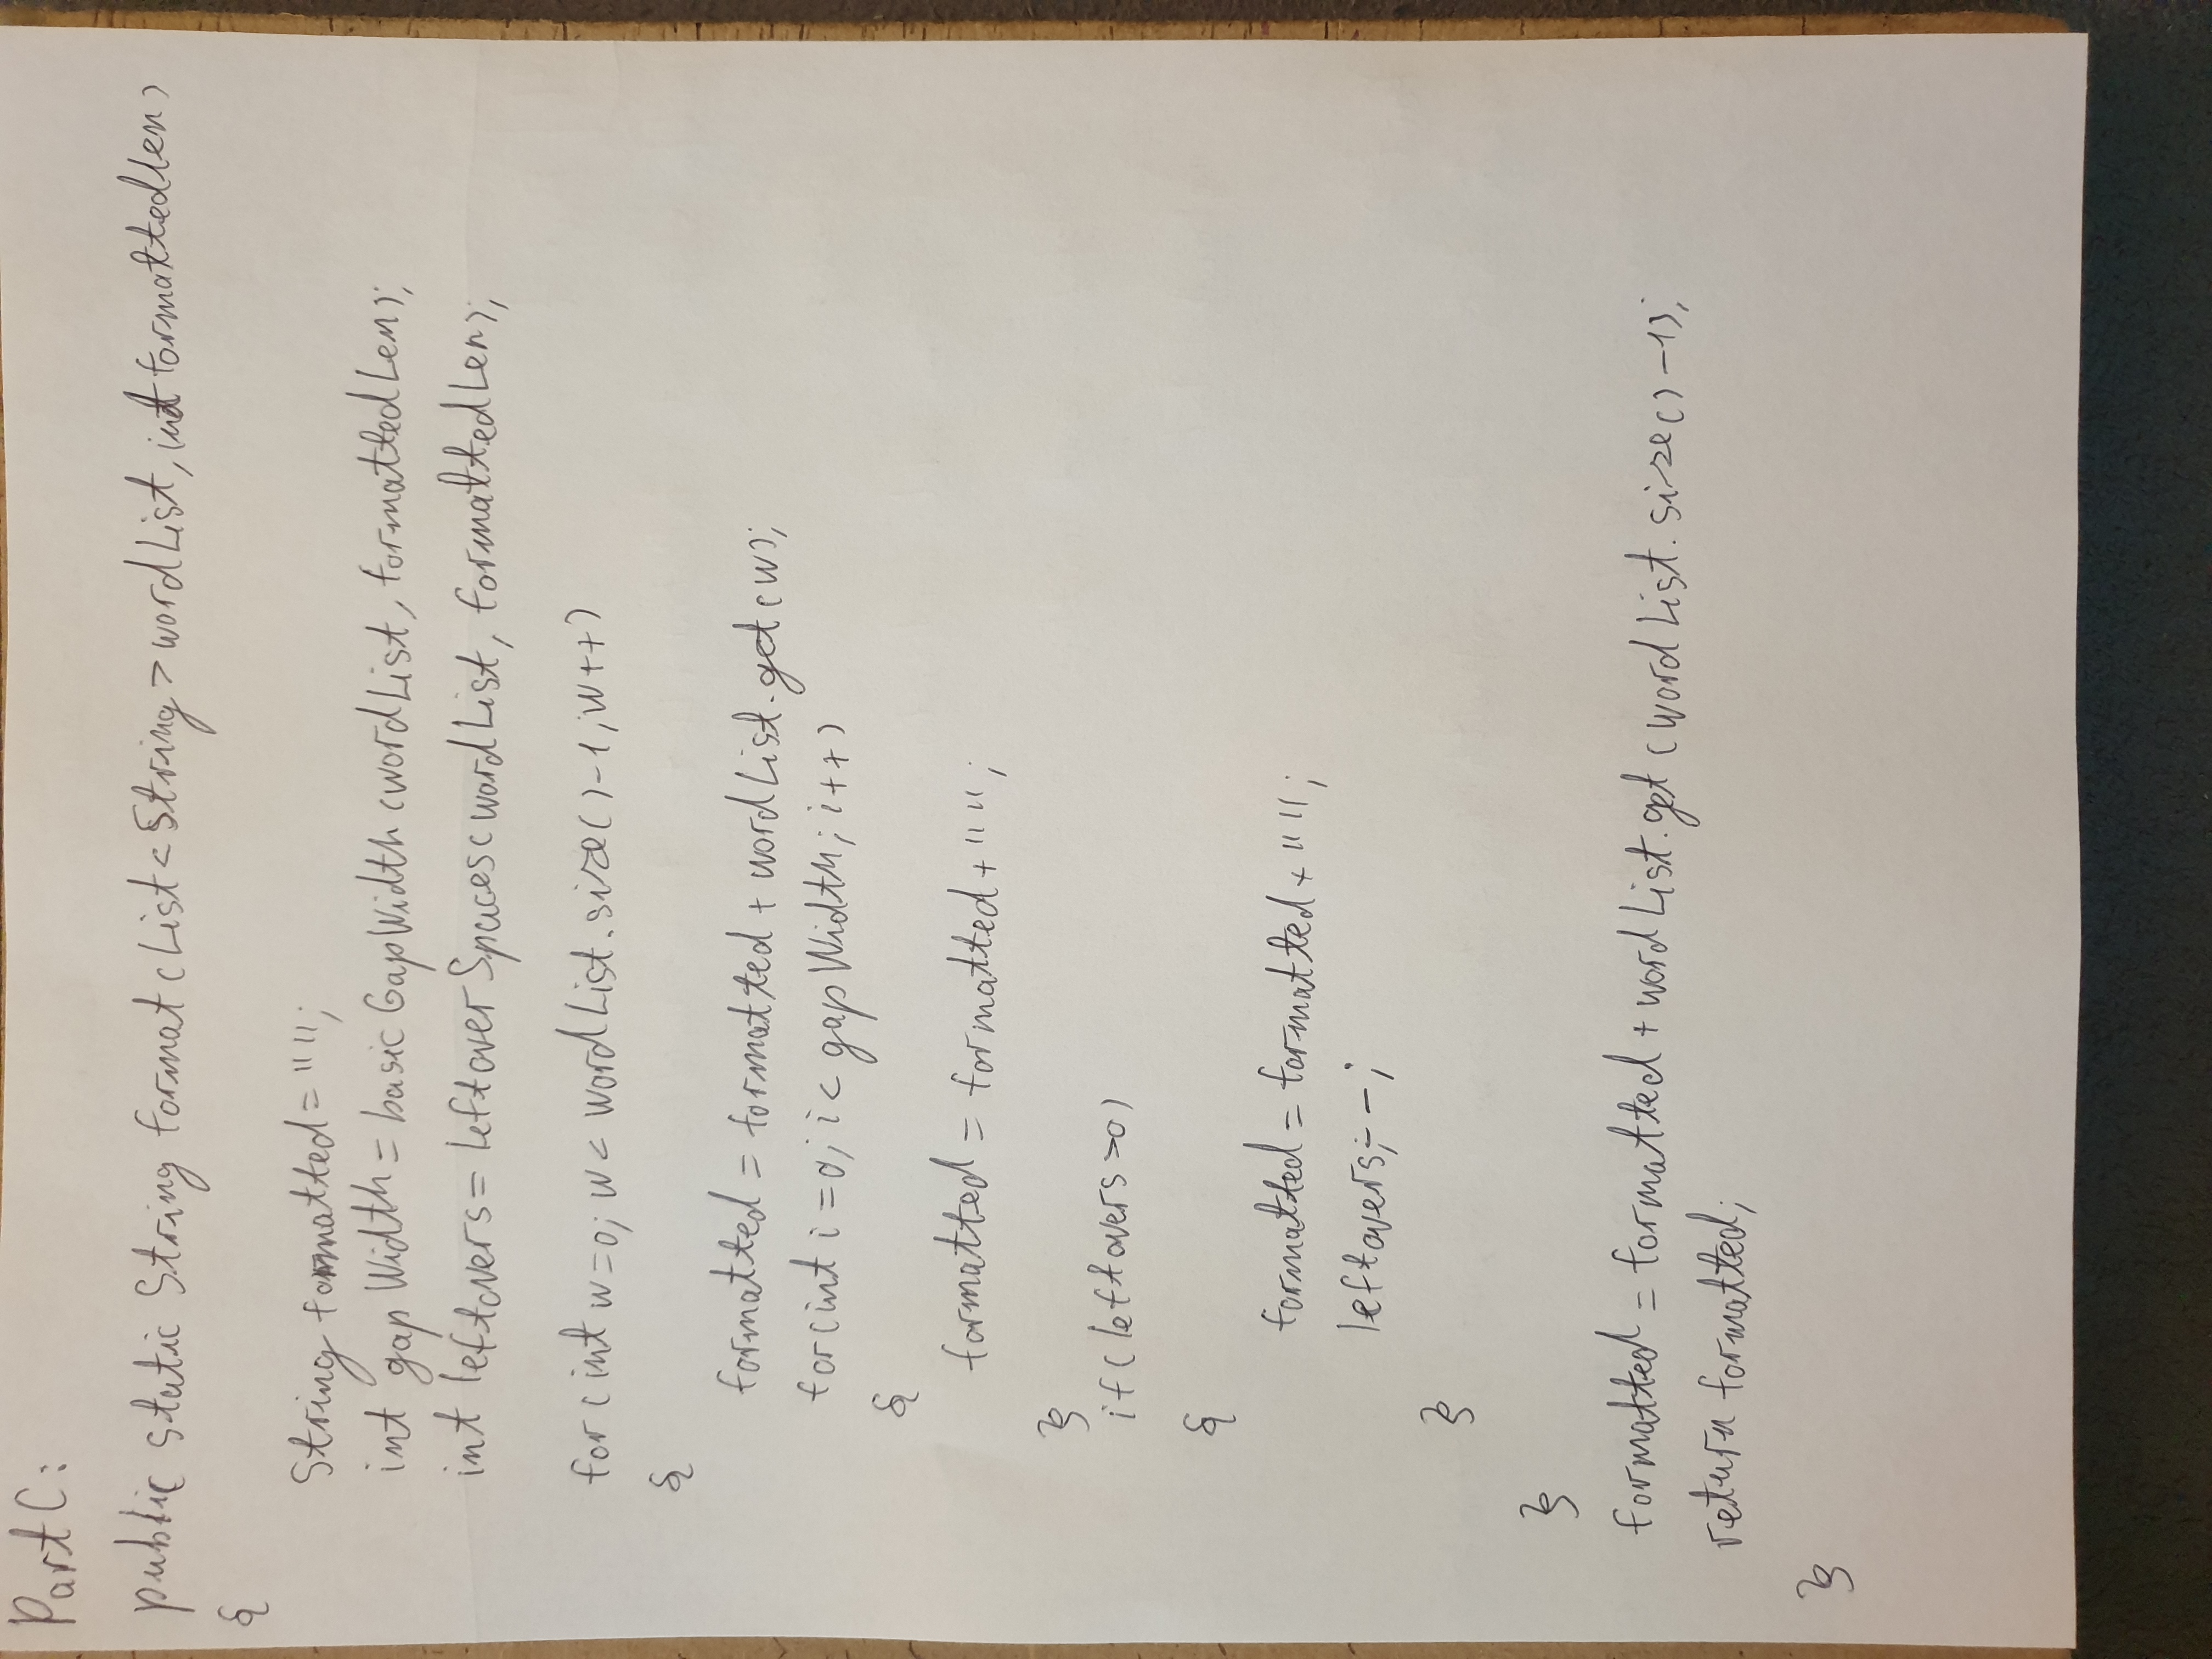 Part C:
public static String format (List < String > wordList, int formattedlen)
{
String formatted = "";
int gapWidth = basicGapWidth (wordList, formattedLen);
int leftovers = leftoverSpaces (wordList, formattedLen);
for (int w=0; w < wordList.size()-1; w++)
{
formatted = formatted + wordList.get(w);
for(int i=0; i < gapWidth; i++)
{
formatted = formatted + " ";
}
if (leftovers >0)
{
formatted = formatted + " ";
leftovers;--;
}
}
formatted = formatted + wordList.get (wordList.size()-1);
return formatted;
}